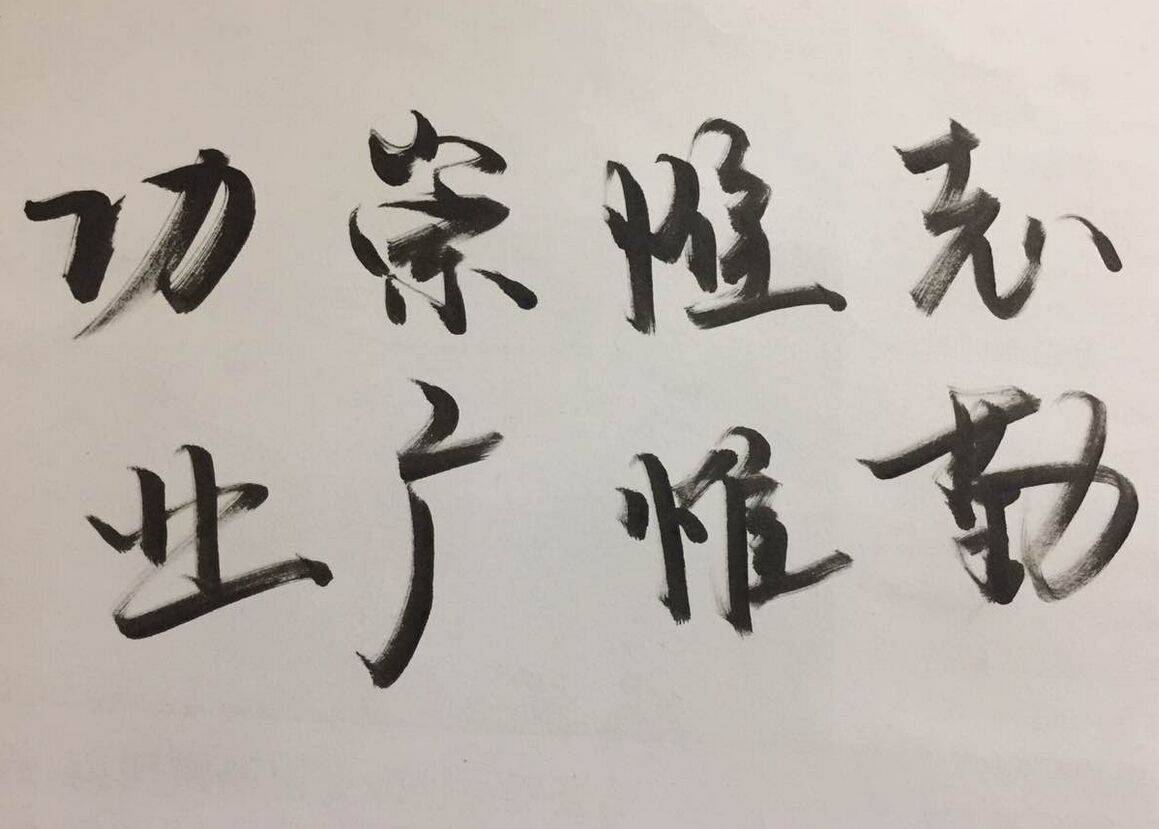 功崇惟志
业广惟勤